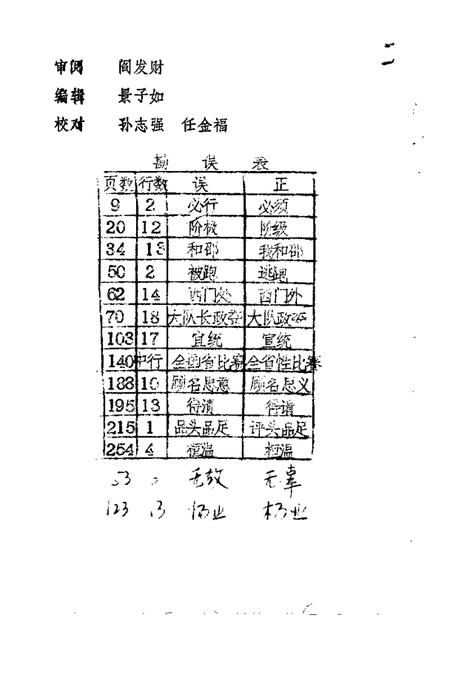 审阅 阎发财
编辑 景子如
校对 孙志强 任金福
勘误表
页数 行数 误 正
9 2 必行 必须
20 12 阶极 阶级
34 13 和邵 我和邵
50 2 被跑 逃跑
62 14 西门处 西门外
70 18 大队长政委 大队政委
103 17 宜统 宣统
140 中行 全国省比赛 全省性比赛
188 10 顾名思意 顾名思义
195 13
215 1 品头品足 评头品足
254 4 恒温
53 无故 无辜
123 13